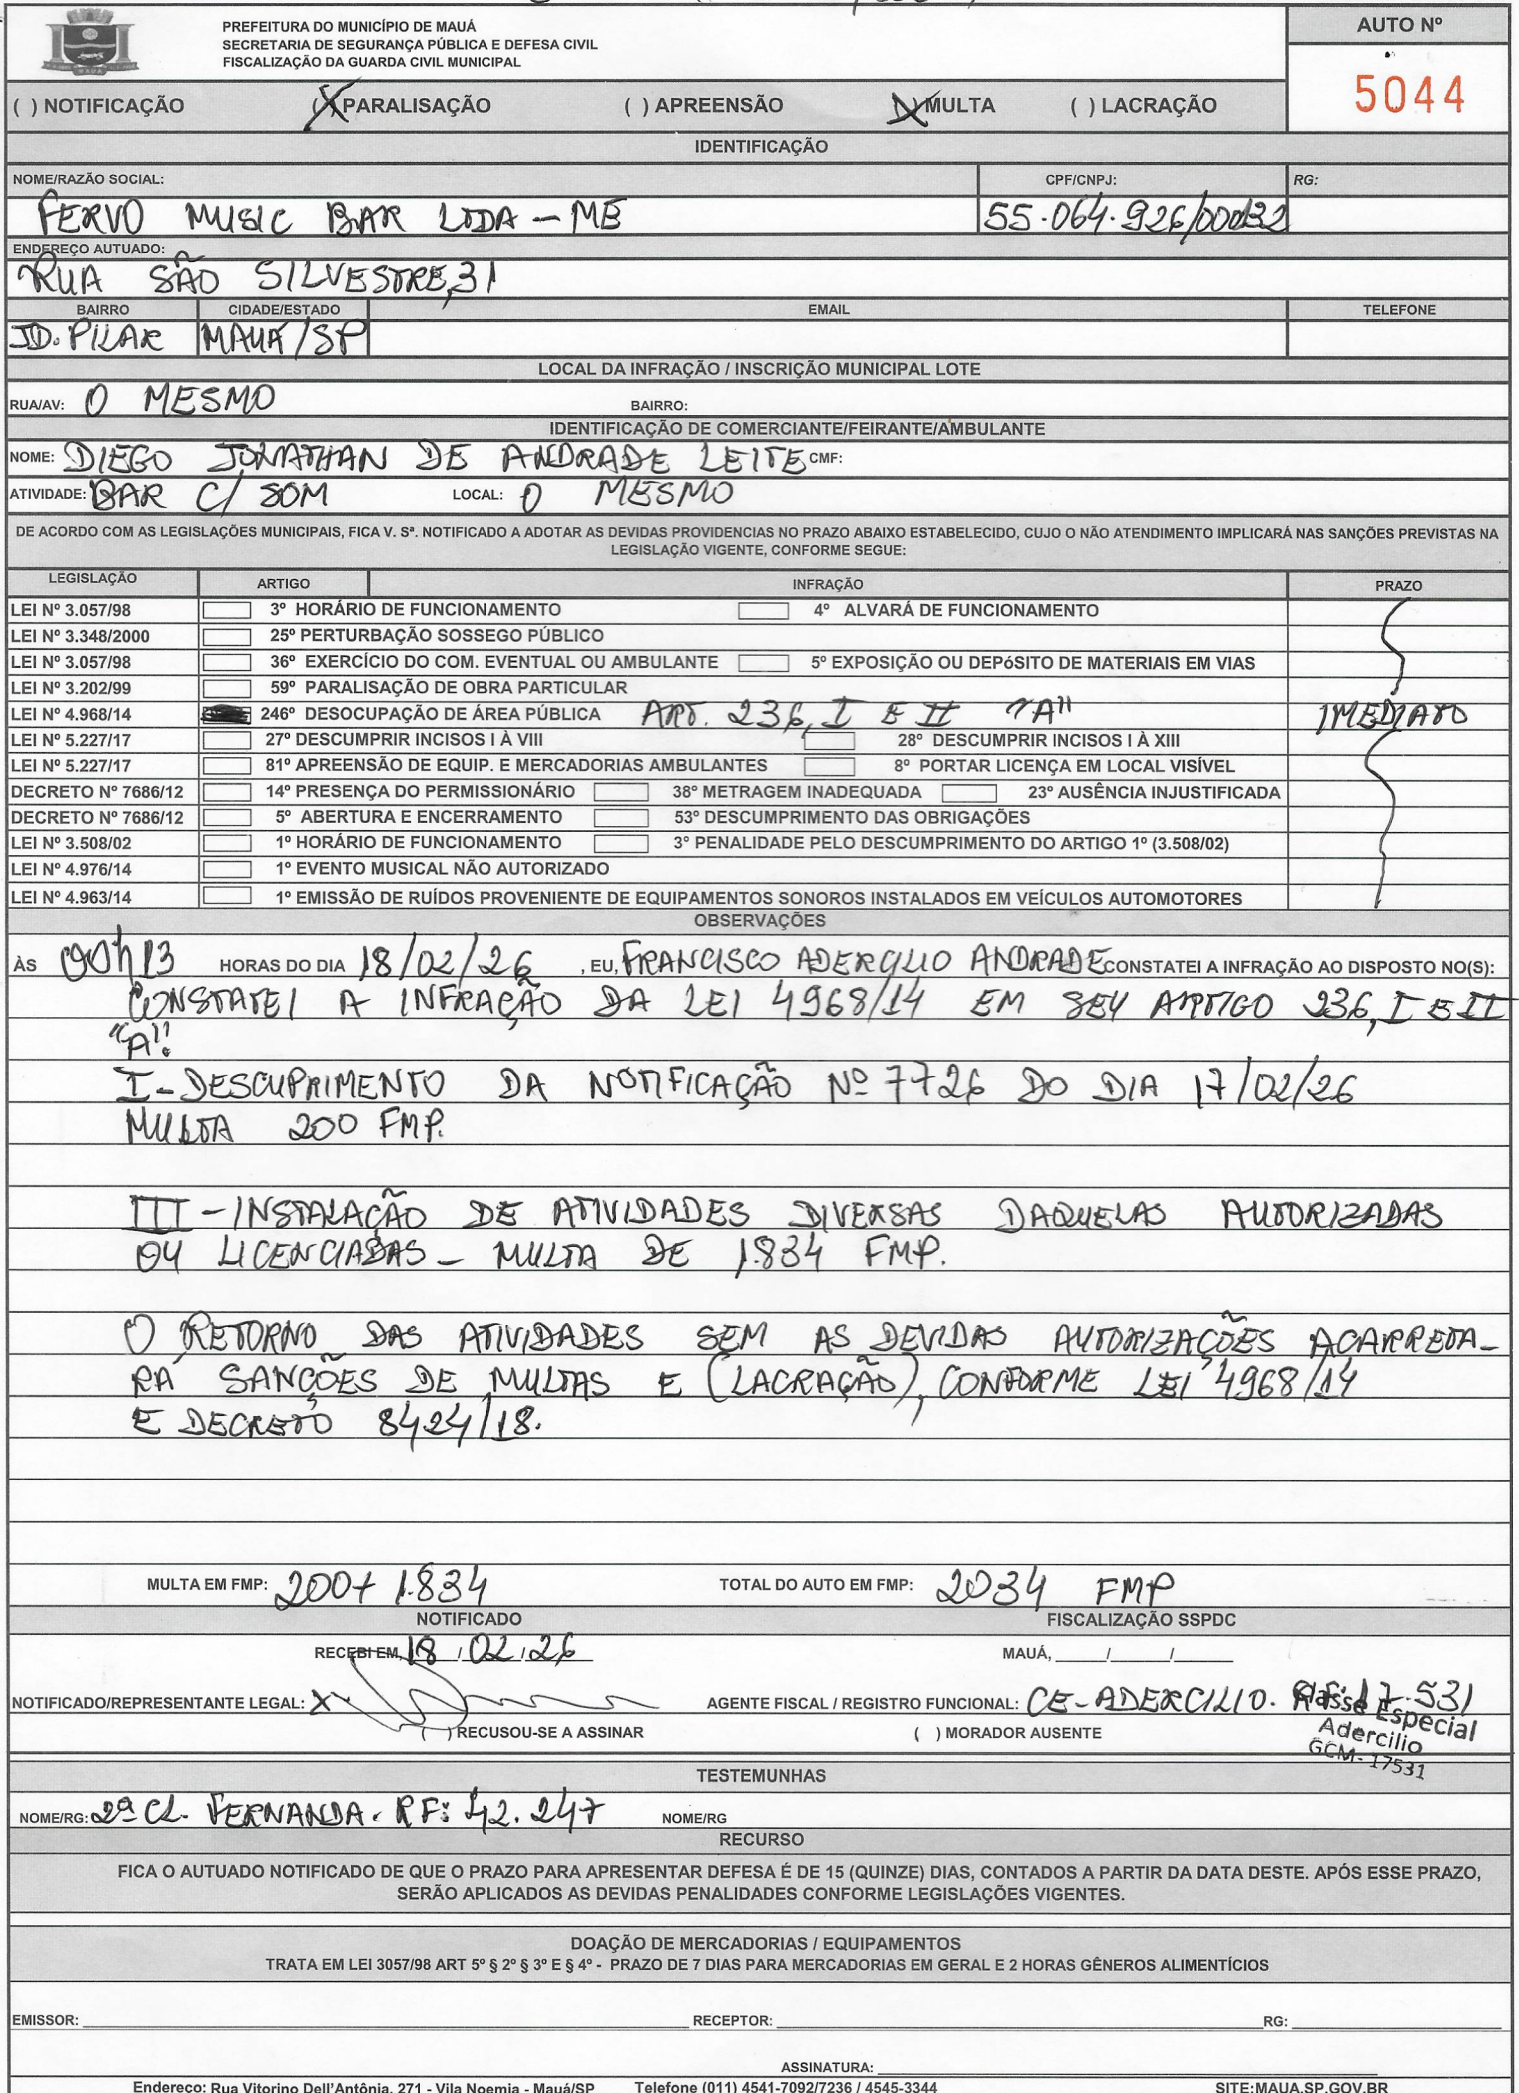 PREFEITURA DO MUNICÍPIO DE MAUÁ
SECRETARIA DE SEGURANÇA PÚBLICA E DEFESA CIVIL
FISCALIZAÇÃO DA GUARDA CIVIL MUNICIPAL
AUTO Nº
5044
( ) NOTIFICAÇÃO (X) PARALISAÇÃO ( ) APREENSÃO (X) MULTA ( ) LACRAÇÃO
IDENTIFICAÇÃO
NOME/RAZÃO SOCIAL: CPF/CNPJ: RG:
FERVO MUSIC BAR LTDA - ME 55.064.926/
ENDEREÇO AUTUADO:
RUA SÃO SILVESTRE, 31
BAIRRO CIDADE/ESTADO EMAIL TELEFONE
JD. PILAR MAUÁ/SP
LOCAL DA INFRAÇÃO / INSCRIÇÃO MUNICIPAL LOTE
RUA/AV: O MESMO BAIRRO:
IDENTIFICAÇÃO DE COMERCIANTE/FEIRANTE/AMBULANTE
NOME: DIEGO JONATHAN DE ANDRADE LEITE CMF:
ATIVIDADE: BAR C/ SOM LOCAL: O MESMO
DE ACORDO COM AS LEGISLAÇÕES MUNICIPAIS, FICA V. Sª. NOTIFICADO A ADOTAR AS DEVIDAS PROVIDENCIAS NO PRAZO ABAIXO ESTABELECIDO, CUJO O NÃO ATENDIMENTO IMPLICARÁ NAS SANÇÕES PREVISTAS NA
LEGISLAÇÃO VIGENTE, CONFORME SEGUE:
LEGISLAÇÃO ARTIGO INFRAÇÃO PRAZO
LEI Nº 3.057/98 3º HORÁRIO DE FUNCIONAMENTO 4º ALVARÁ DE FUNCIONAMENTO
LEI Nº 3.348/2000 25º PERTURBAÇÃO SOSSEGO PÚBLICO
LEI Nº 3.057/98 36º EXERCÍCIO DO COM. EVENTUAL OU AMBULANTE 5º EXPOSIÇÃO OU DEPóSITO DE MATERIAIS EM VIAS
LEI Nº 3.202/99 59º PARALISAÇÃO DE OBRA PARTICULAR
LEI Nº 4.968/14 246º DESOCUPAÇÃO DE ÁREA PÚBLICA ART. 236, I E II "A" IMEDIATO
LEI Nº 5.227/17 27º DESCUMPRIR INCISOS I À VIII 28º DESCUMPRIR INCISOS I À XIII
LEI Nº 5.227/17 81º APREENSÃO DE EQUIP. E MERCADORIAS AMBULANTES 8º PORTAR LICENÇA EM LOCAL VISÍVEL
DECRETO Nº 7686/12 14º PRESENÇA DO PERMISSIONÁRIO 38º METRAGEM INADEQUADA 23º AUSÊNCIA INJUSTIFICADA
DECRETO Nº 7686/12 5º ABERTURA E ENCERRAMENTO 53º DESCUMPRIMENTO DAS OBRIGAÇÕES
LEI Nº 3.508/02 1º HORÁRIO DE FUNCIONAMENTO 3º PENALIDADE PELO DESCUMPRIMENTO DO ARTIGO 1º (3.508/02)
LEI Nº 4.976/14 1º EVENTO MUSICAL NÃO AUTORIZADO
LEI Nº 4.963/14 1º EMISSÃO DE RUÍDOS PROVENIENTE DE EQUIPAMENTOS SONOROS INSTALADOS EM VEÍCULOS AUTOMOTORES
OBSERVAÇÕES
ÀS 00h13 HORAS DO DIA 18/02/26, EU, FRANCISCO ADERCILIO ANDRADE CONSTATEI A INFRAÇÃO AO DISPOSTO NO(S):
CONSTATEI A INFRAÇÃO DA LEI 4968/14 EM SEU ARTIGO 236, I E II
"A".
I - DESCUPRIMENTO DA NOTIFICAÇÃO Nº 7726 DO DIA 17/02/26
MULTA 200 FMP.
III - INSTALAÇÃO DE ATIVIDADES DIVERSAS DAQUELAS AUTORIZADAS
OU LICENCIADAS - MULTA DE 1.834 FMP.
O RETORNO DAS ATIVIDADES SEM AS DEVIDAS AUTORIZAÇÕES ACARRETA-
RÁ SANÇÕES DE MULTAS E (LACRAÇÃO), CONFORME LEI 4968/14
E DECRETO 8424/18.
MULTA EM FMP: 200 + 1.834 TOTAL DO AUTO EM FMP: 2034 FMP
NOTIFICADO FISCALIZAÇÃO SSPDC
RECEBI EM 18/02/26 MAUÁ, ____/____/____
NOTIFICADO/REPRESENTANTE LEGAL: X AGENTE FISCAL / REGISTRO FUNCIONAL: CE-ADERCILIO. RF: 17.531
( ) RECUSOU-SE A ASSINAR ( ) MORADOR AUSENTE
Classe Especial
Adercilio
GCM - 17531
TESTEMUNHAS
NOME/RG: 2ª CL. FERNANDA. RF: 42.247 NOME/RG
RECURSO
FICA O AUTUADO NOTIFICADO DE QUE O PRAZO PARA APRESENTAR DEFESA É DE 15 (QUINZE) DIAS, CONTADOS A PARTIR DA DATA DESTE. APÓS ESSE PRAZO,
SERÃO APLICADOS AS DEVIDAS PENALIDADES CONFORME LEGISLAÇÕES VIGENTES.
DOAÇÃO DE MERCADORIAS / EQUIPAMENTOS
TRATA EM LEI 3057/98 ART 5º § 2º § 3º E § 4º - PRAZO DE 7 DIAS PARA MERCADORIAS EM GERAL E 2 HORAS GÊNEROS ALIMENTÍCIOS
EMISSOR: RECEPTOR: RG:
ASSINATURA:
Endereço: Rua Vitorino Dell'Antônia, 271 - Vila Noemia - Mauá/SP Telefone (011) 4541-7092/7236 / 4545-3344 SITE:MAUA.SP.GOV.BR